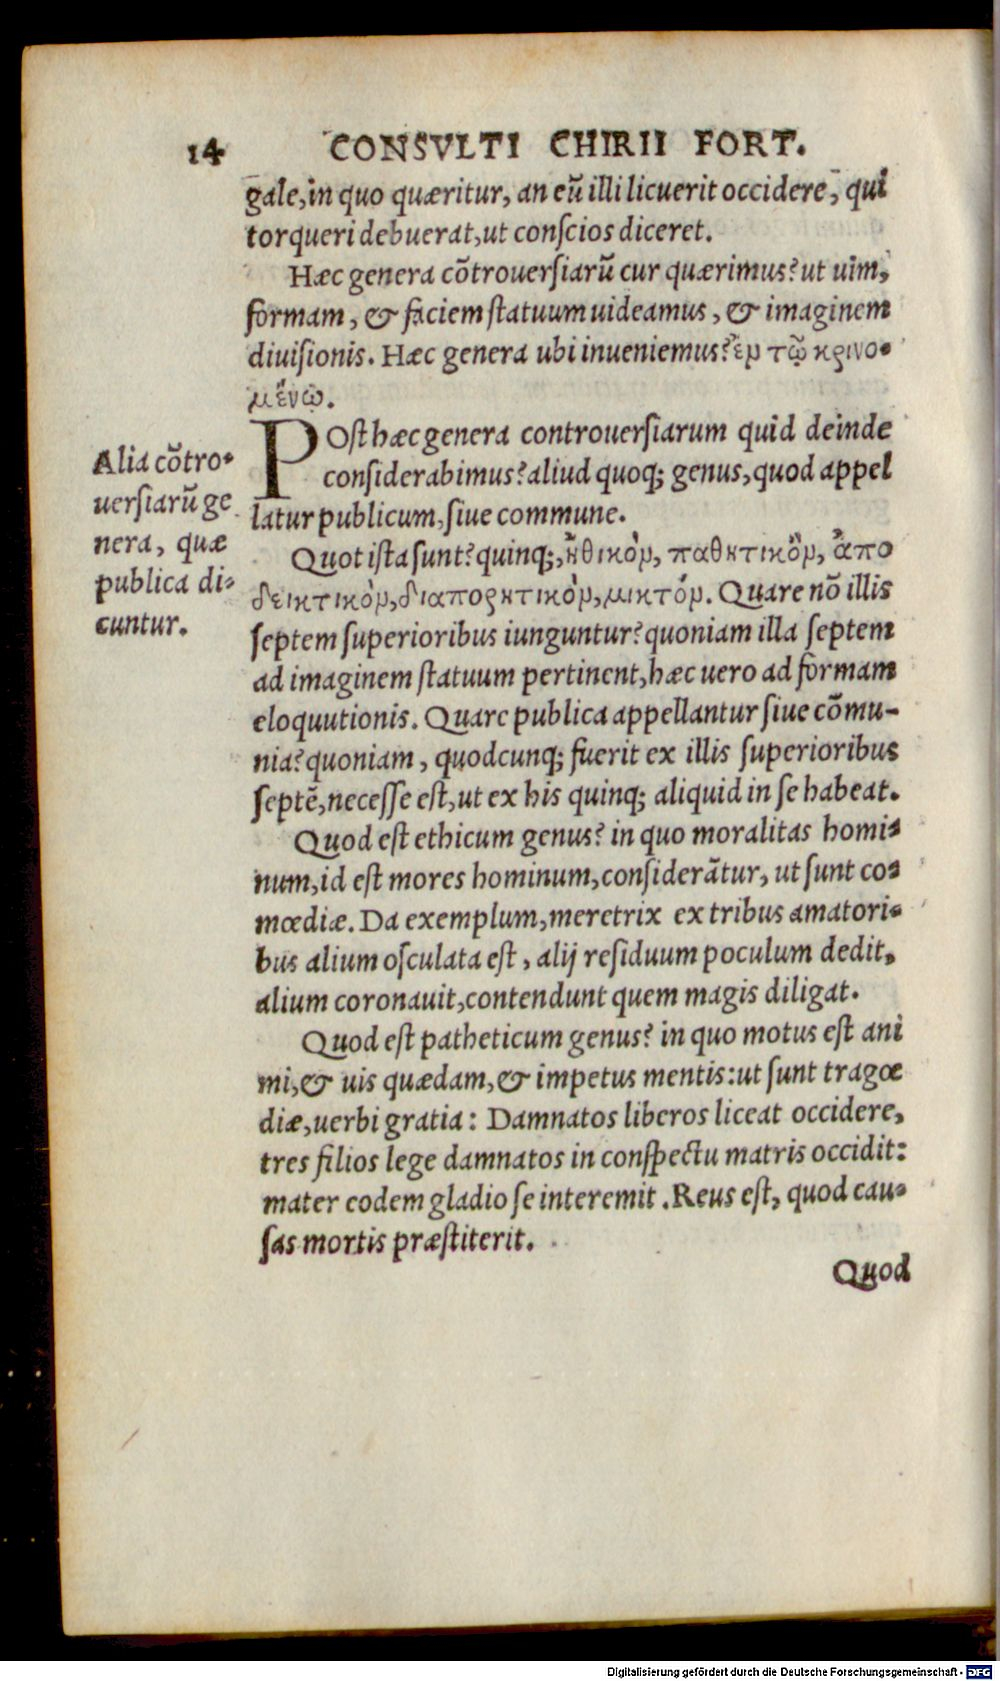 14 CONSVLTI CHIRII FORT.
gale, in quo quæritur, an eũ illi licuerit occidere, qui
torqueri debuerat, ut conſcios diceret.
Hæc genera cõtrouerſiarũ cur quærimus? ut uim,
formam, & faciem ſtatuum uideamus, & imaginem
diuiſionis. Hæc genera ubi inueniemus? ἐν τῷ κρινο-
μένῳ.
POſt hæc genera controuerſiarum quid deinde
conſiderabimus? aliud quoq; genus, quod appel
latur publicum, ſiue commune.
Alia cõtro-
uerſiarũ ge
nera, quæ
publica di-
cuntur.
Quot iſta ſunt? quinq;, ἠθικὸν, παθητικὸν, ἀπο
δεικτικὸν, διαπορητικὸν, μικτόν. Quare nõ illis
ſeptem ſuperioribus iunguntur? quoniam illa ſeptem
ad imaginem ſtatuum pertinent, hæc uero ad formam
eloquutionis. Quare publica appellantur ſiue cõmu-
nia? quoniam, quodcunq; fuerit ex illis ſuperioribus
ſeptẽ, neceſſe eſt, ut ex his quinq; aliquid in ſe habeat.
Quod eſt ethicum genus? in quo moralitas homi-
num, id eſt mores hominum, conſiderãtur, ut ſunt co-
mœdiæ. Da exemplum, meretrix ex tribus amatori-
bus alium oſculata eſt, alij reſiduum poculum dedit,
alium coronauit, contendunt quem magis diligat.
Quod eſt patheticum genus? in quo motus eſt ani
mi, & uis quædam, & impetus mentis: ut ſunt tragœ
diæ, uerbi gratia: Damnatos liberos liceat occidere,
tres filios lege damnatos in conſpectu matris occidit:
mater eodem gladio ſe interemit. Reus eſt, quod cau-
ſas mortis præſtiterit.
Quod
Digitalisierung gefördert durch die Deutsche Forschungsgemeinschaft - DFG